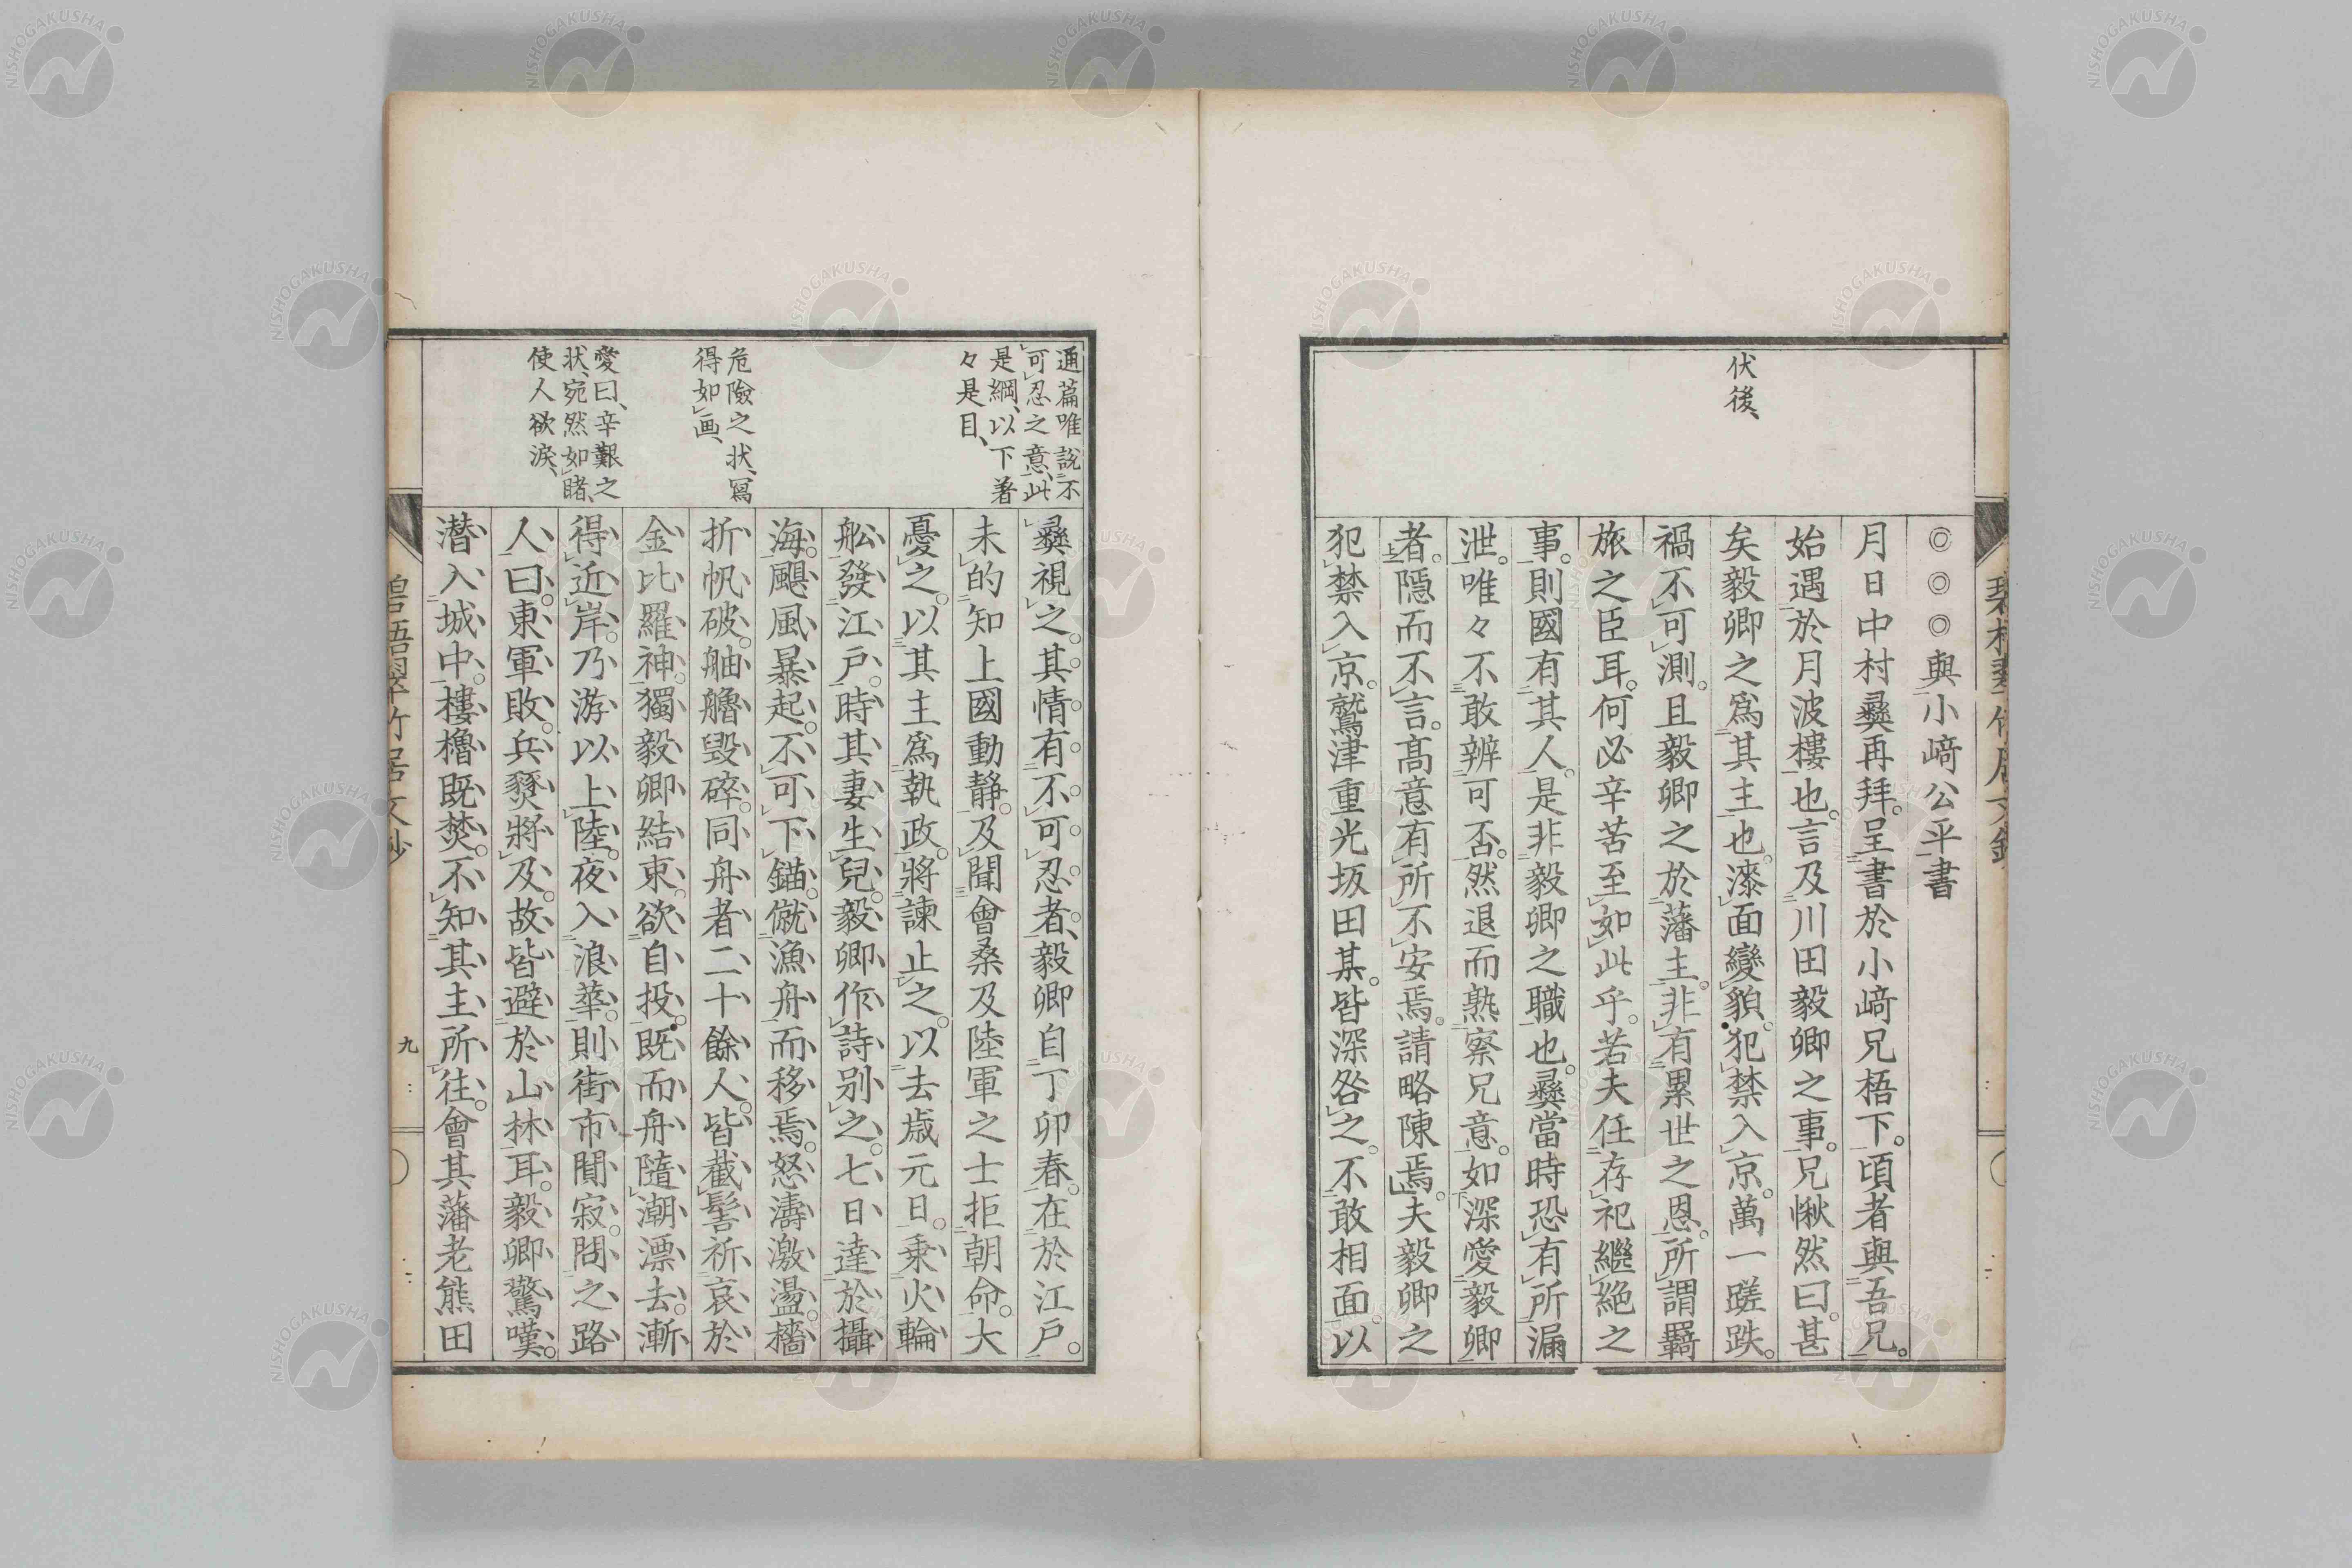 伏後、
◎◎◎與小﨑公平書
月日中村彝再拜。呈書於小﨑兄梧下。頃者與吾兄。
始遇於月波樓也。言及川田毅卿之事。兄愀然曰。甚
矣毅卿之爲其主也。漆面變貌。犯禁入京。萬一蹉跌。
禍不可測。且毅卿之於藩主。非有累世之恩。所謂羇
旅之臣耳。何必辛苦至如此乎。若夫任存祀繼絕之
事。則國有其人。是非毅卿之職也。彝當時恐有所漏
泄。唯々不敢辨可否。然退而熟察兄意。如深愛毅卿
者。隱而不言。髙意有所不安焉。請略陳焉。夫毅卿之
犯禁入京。鷲津重光坂田某。皆深咎之。不敢相面。以
通篇唯說不
可忍之意、此
是綱、以下著
々是目、
危險之状、寫
得如画、
愛曰、辛艱之
状、宛然如睹、
使人欲淚、
彝視之。其情有不可忍者、毅卿自丁卯春。在於江戸。
未的知上國動靜。及聞會桑及陸軍之士拒朝命。大
憂之。以其主爲執政。將諫止之。以去歳元日。乗火輪
舩發江戸。時其妻生兒。毅卿作詩别之。七日達於攝
海。颶風暴起。不可下錨。僦漁舟而移焉。怒濤激盪。檣
折帆破。舳艫毁碎。同舟者二十餘人。皆截髻祈哀於
金比羅神。獨毅卿結束。欲自投。既而舟隨潮漂去。漸
得近岸。乃游以上陸。夜入浪華。則街市閴寂。問之路
人。曰。東軍敗。兵燹將及。故皆避於山林耳。毅卿驚嘆。
潜入城中。樓櫓既焚。不知其主所往。會其藩老熊田
九
NISHOGAKUSHA